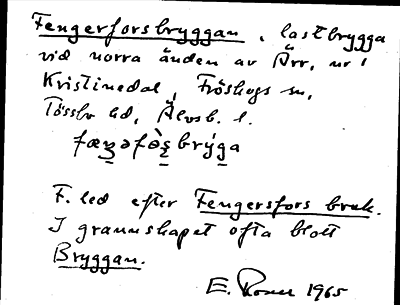 Fengerforsbryggan, lastbrygga
vid norra änden av Ärr, nr 1
Kristinedal, Fröskogs sn,
Tössbo hd, Älvsb. l.
F. led efter Fengersfors bruk.
I grannskapet ofta blott
Bryggan.
E. 1965